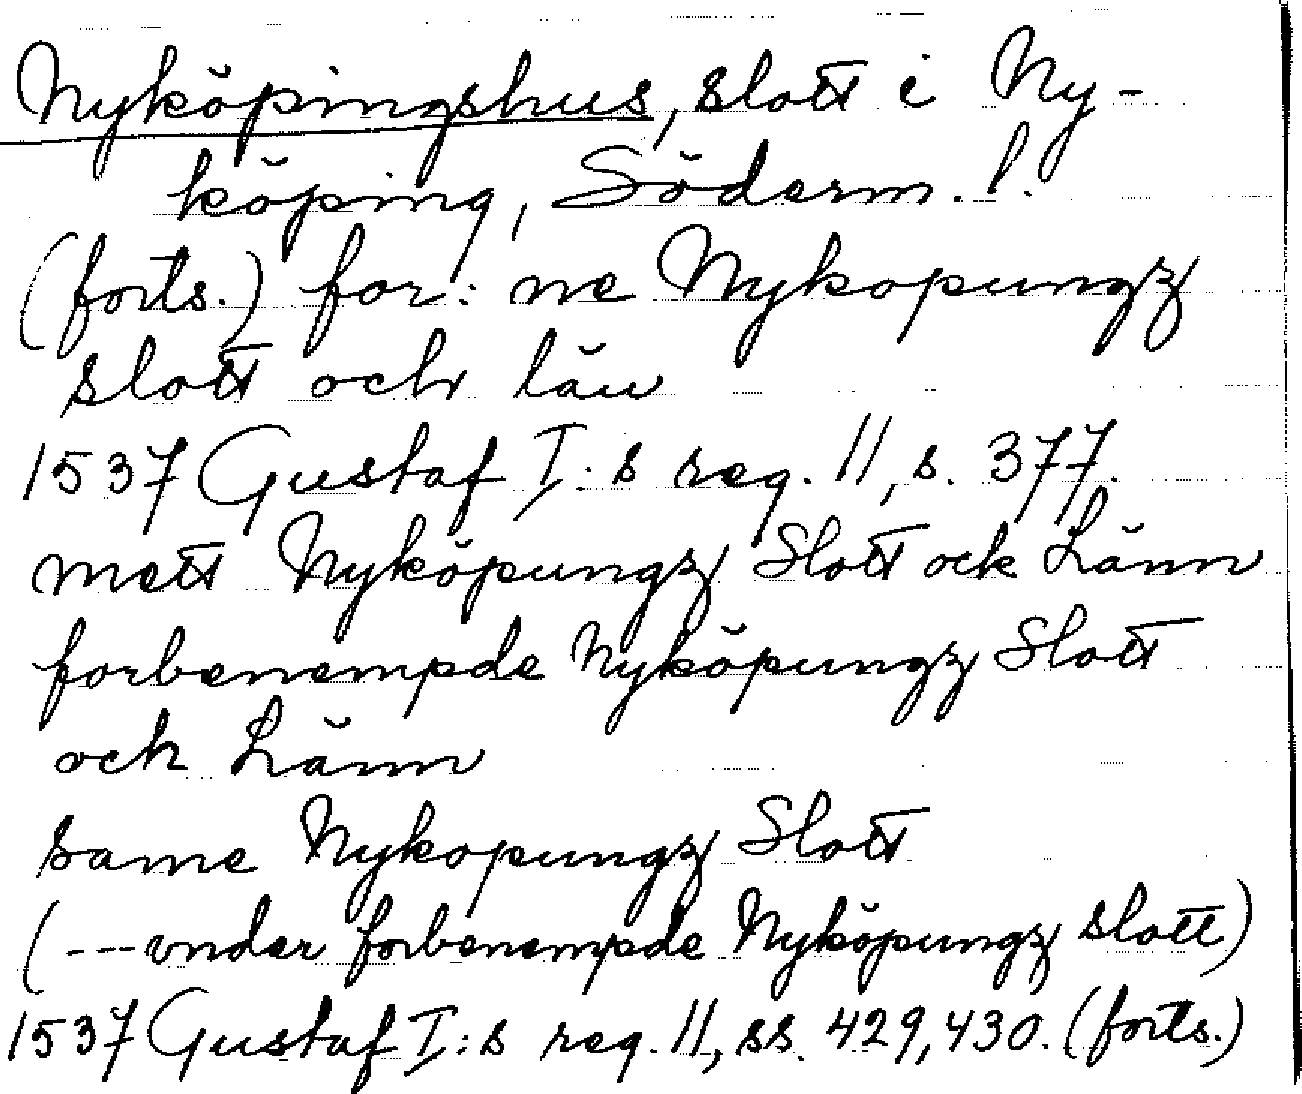 Nyköpingshus, slott i Ny-
köping, Söderm. l.
(forts.) for: ne Nykopungz
slott och län
1537 Gustaf I:s reg. 11, s. 377.
mett Nyköpungz Slott ock Länn
forbenempde Nyköpungz Slott
ock Länn
same Nykopungz Slott
(---vnder forbenempde Nyköpungz slott)
1537 Gustaf I:s reg. 11, ss. 429,430. (forts.)